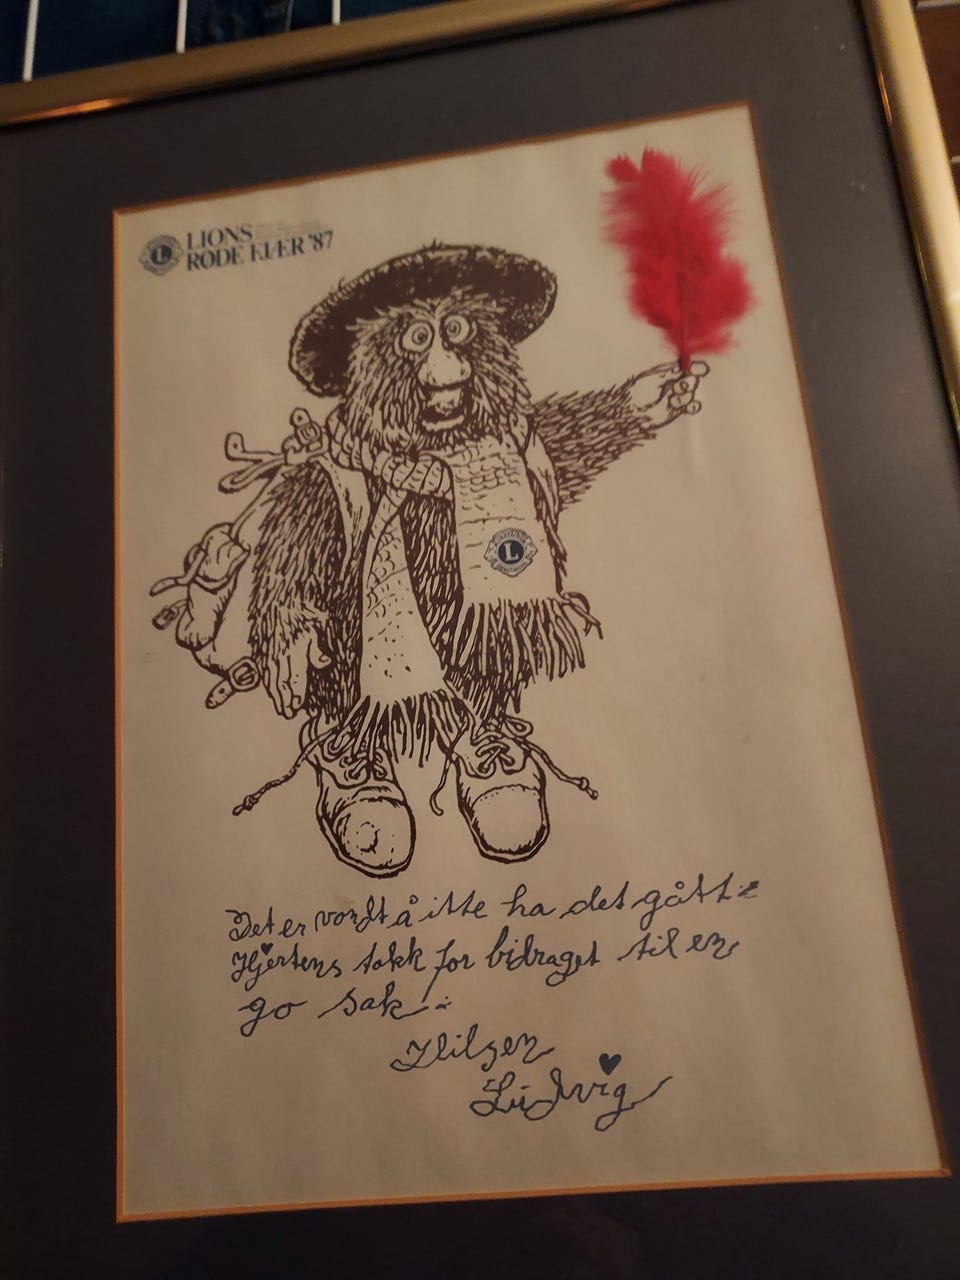 LIONS
RØDE FJÆR '87
L
L
Det er vondt å itte ha det gått
Hjertens takk for bidraget til en
go sak
Hilsen
Ludvig